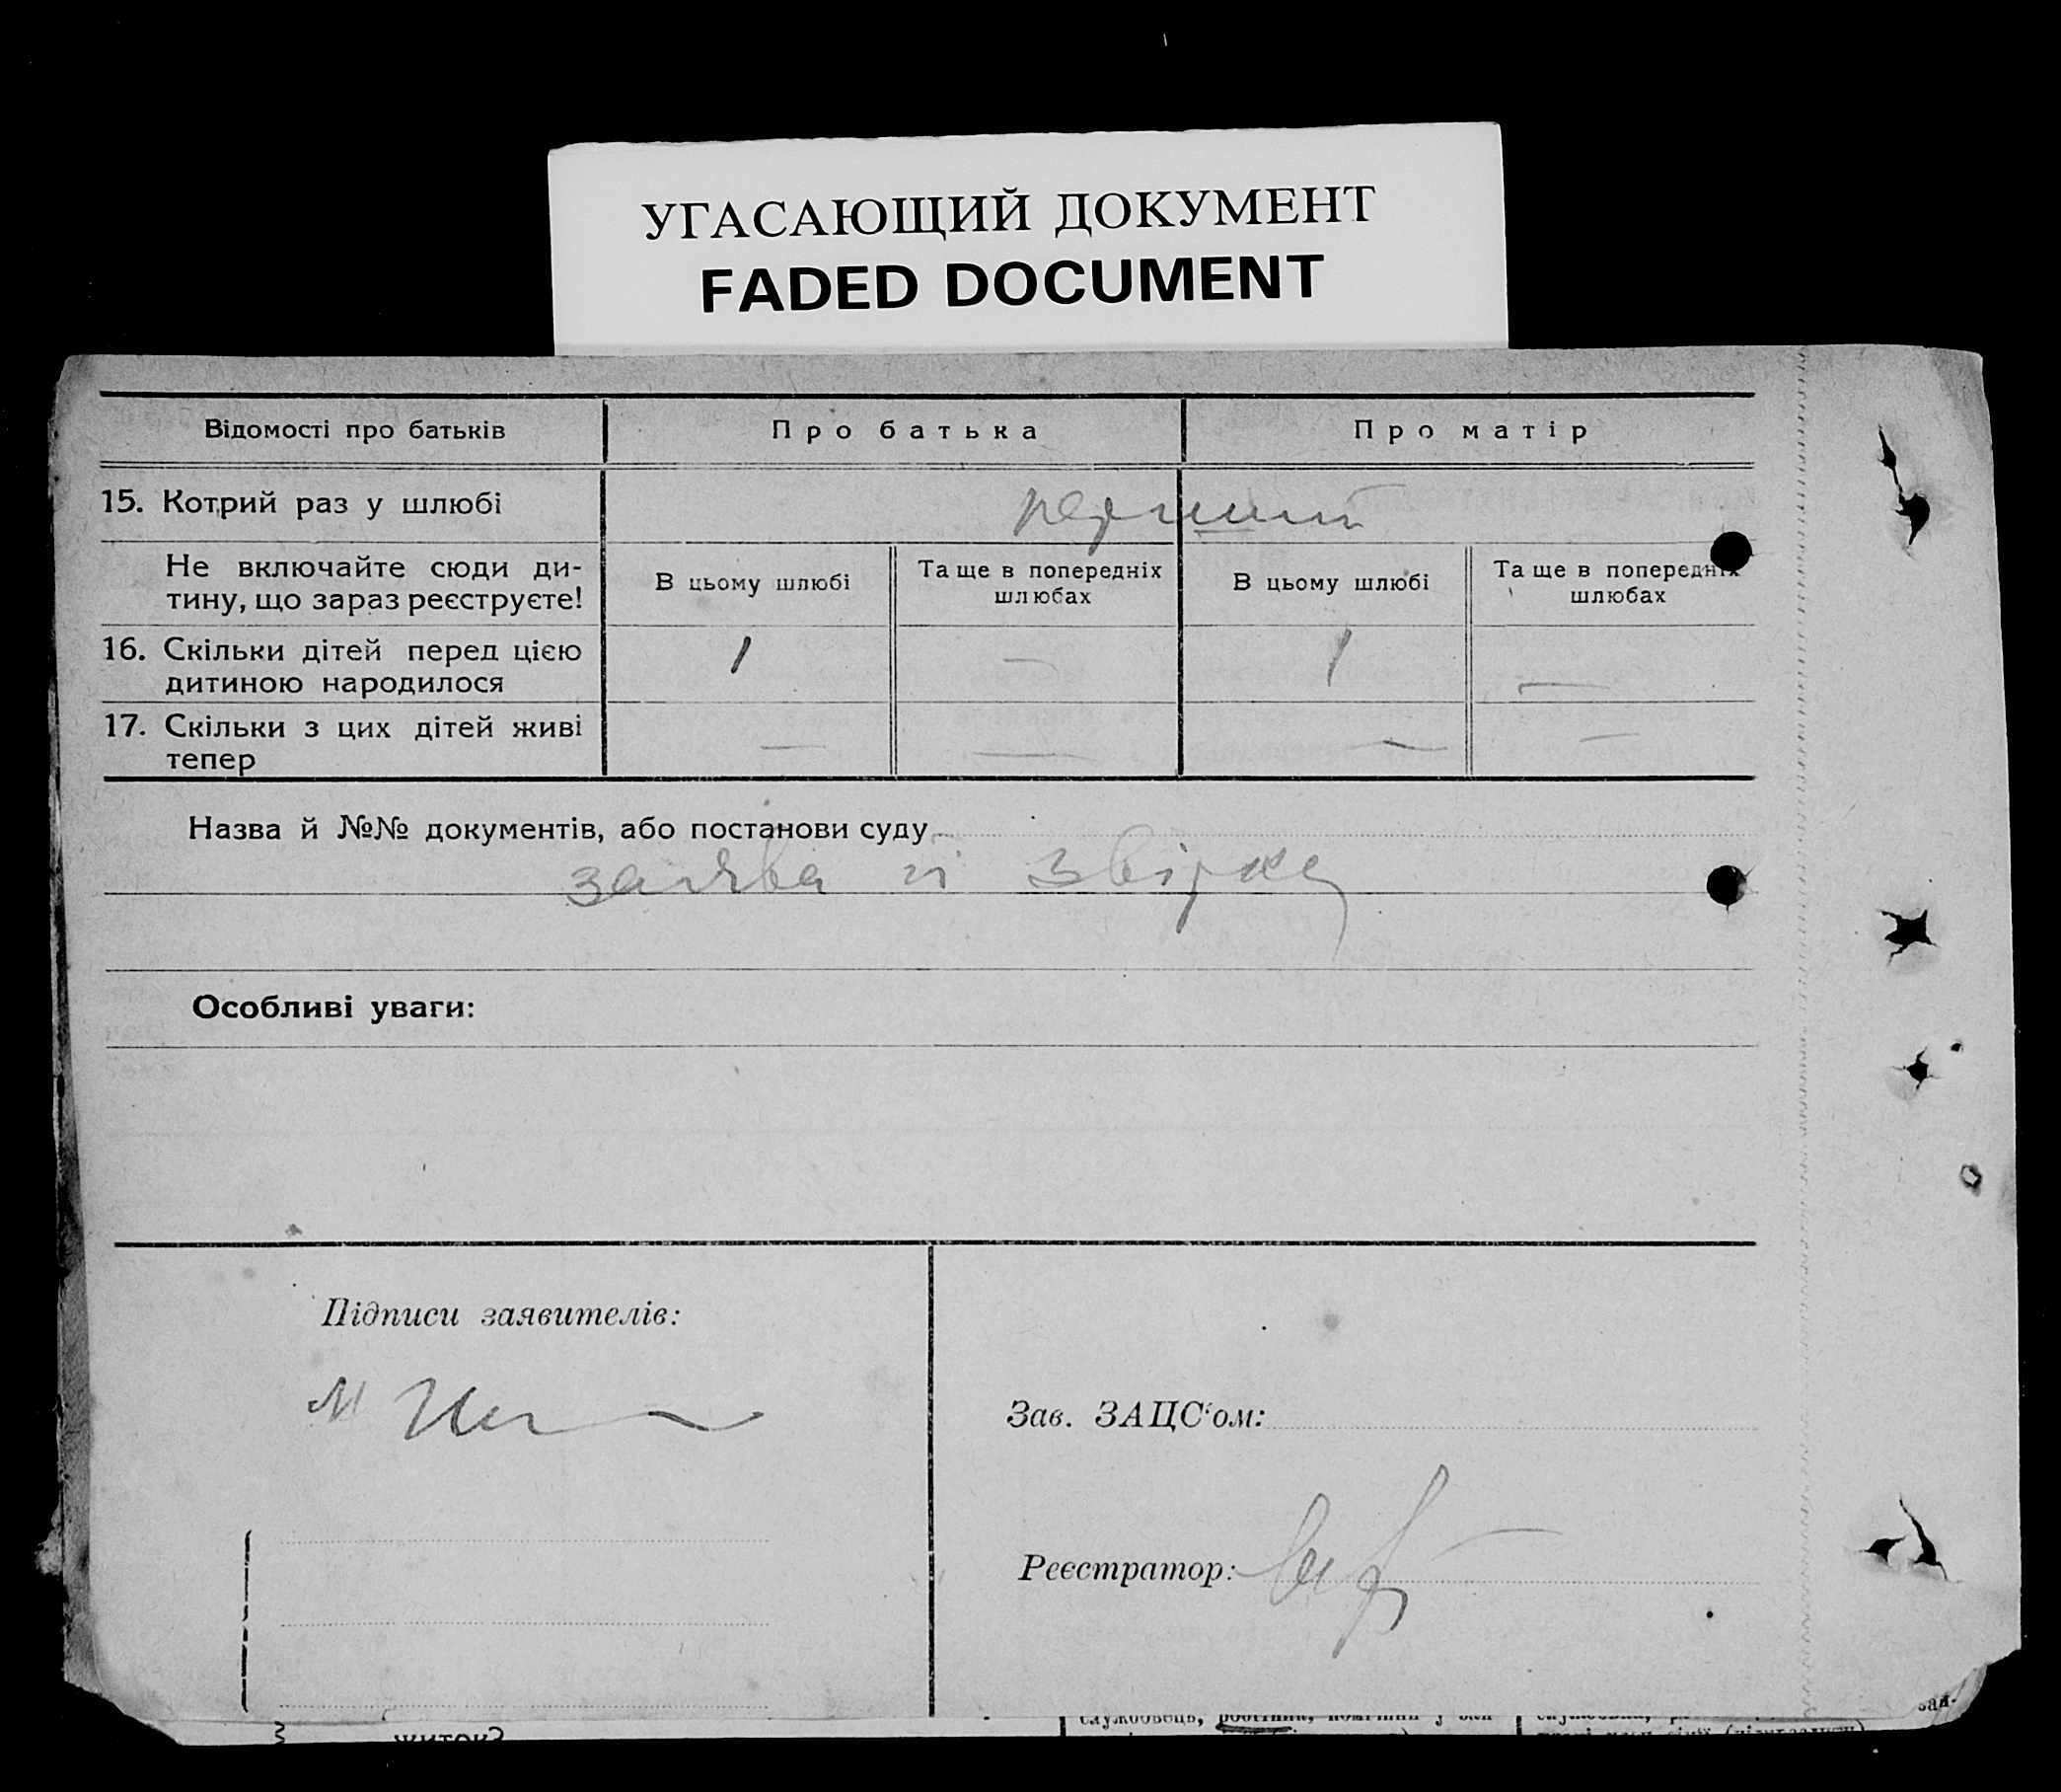 УГАСАЮЩИЙ ДОКУМЕНТ
FADED DOCUMENT
Відомості про батьків Про батька Про матір
15. Котрий раз у шлюбі перший
Не включайте сюди ди-
тину, що зараз реєструєте!
В цьому шлюбі
Та ще в попередніх
шлюбах
В цьому шлюбі
Та ще в попередніх
шлюбах
16. Скільки дітей перед цією
дитиною народилося
1 — 1 —
17. Скільки з цих дітей живі
тепер
— — — —
Назва й №№ документів, або постанови суду
заява й звірка
Особливі уваги:
Підписи заявителів:
М
Зав. ЗАЦС'ом:
Реєстратор:
службовець, робітник,